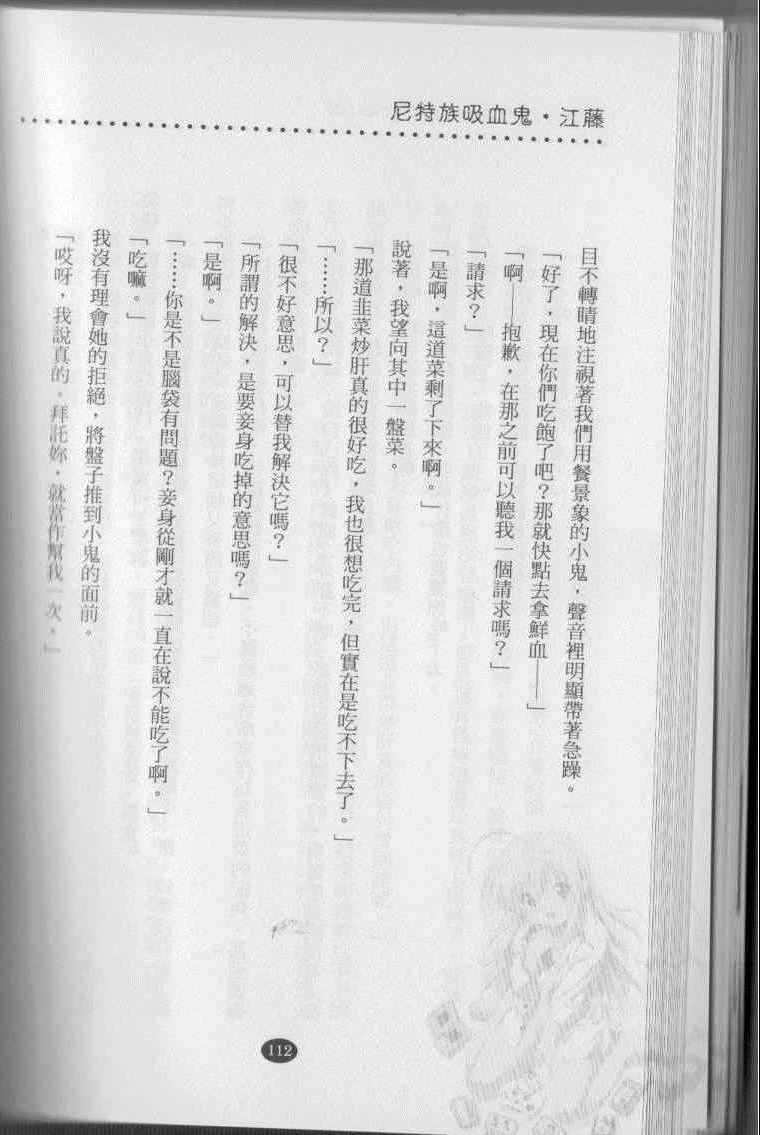 尼特族吸血鬼・江藤
目不轉睛地注視著我們用餐景象的小鬼，聲音裡明顯帶著急躁。
「好了，現在你們吃飽了吧？那就快點去拿鮮血——」
「啊——抱歉，在那之前可以聽我一個請求嗎？」
「請求？」
「是啊，這道菜剩了下來啊。」
說著，我望向其中一盤菜。
「那道韭菜炒肝真的很好吃，我也很想吃完，但實在是吃不下去了。」
「……所以？」
「很不好意思，可以替我解決它嗎？」
「所謂的解決，是要妾身吃掉的意思嗎？」
「是啊。」
「……你是不是腦袋有問題？妾身從剛才就一直在說不能吃了啊。」
「吃嘛。」
我沒有理會她的拒絕，將盤子推到小鬼的面前。
「哎呀，我說真的。拜託妳，就當作幫我一次，」
112